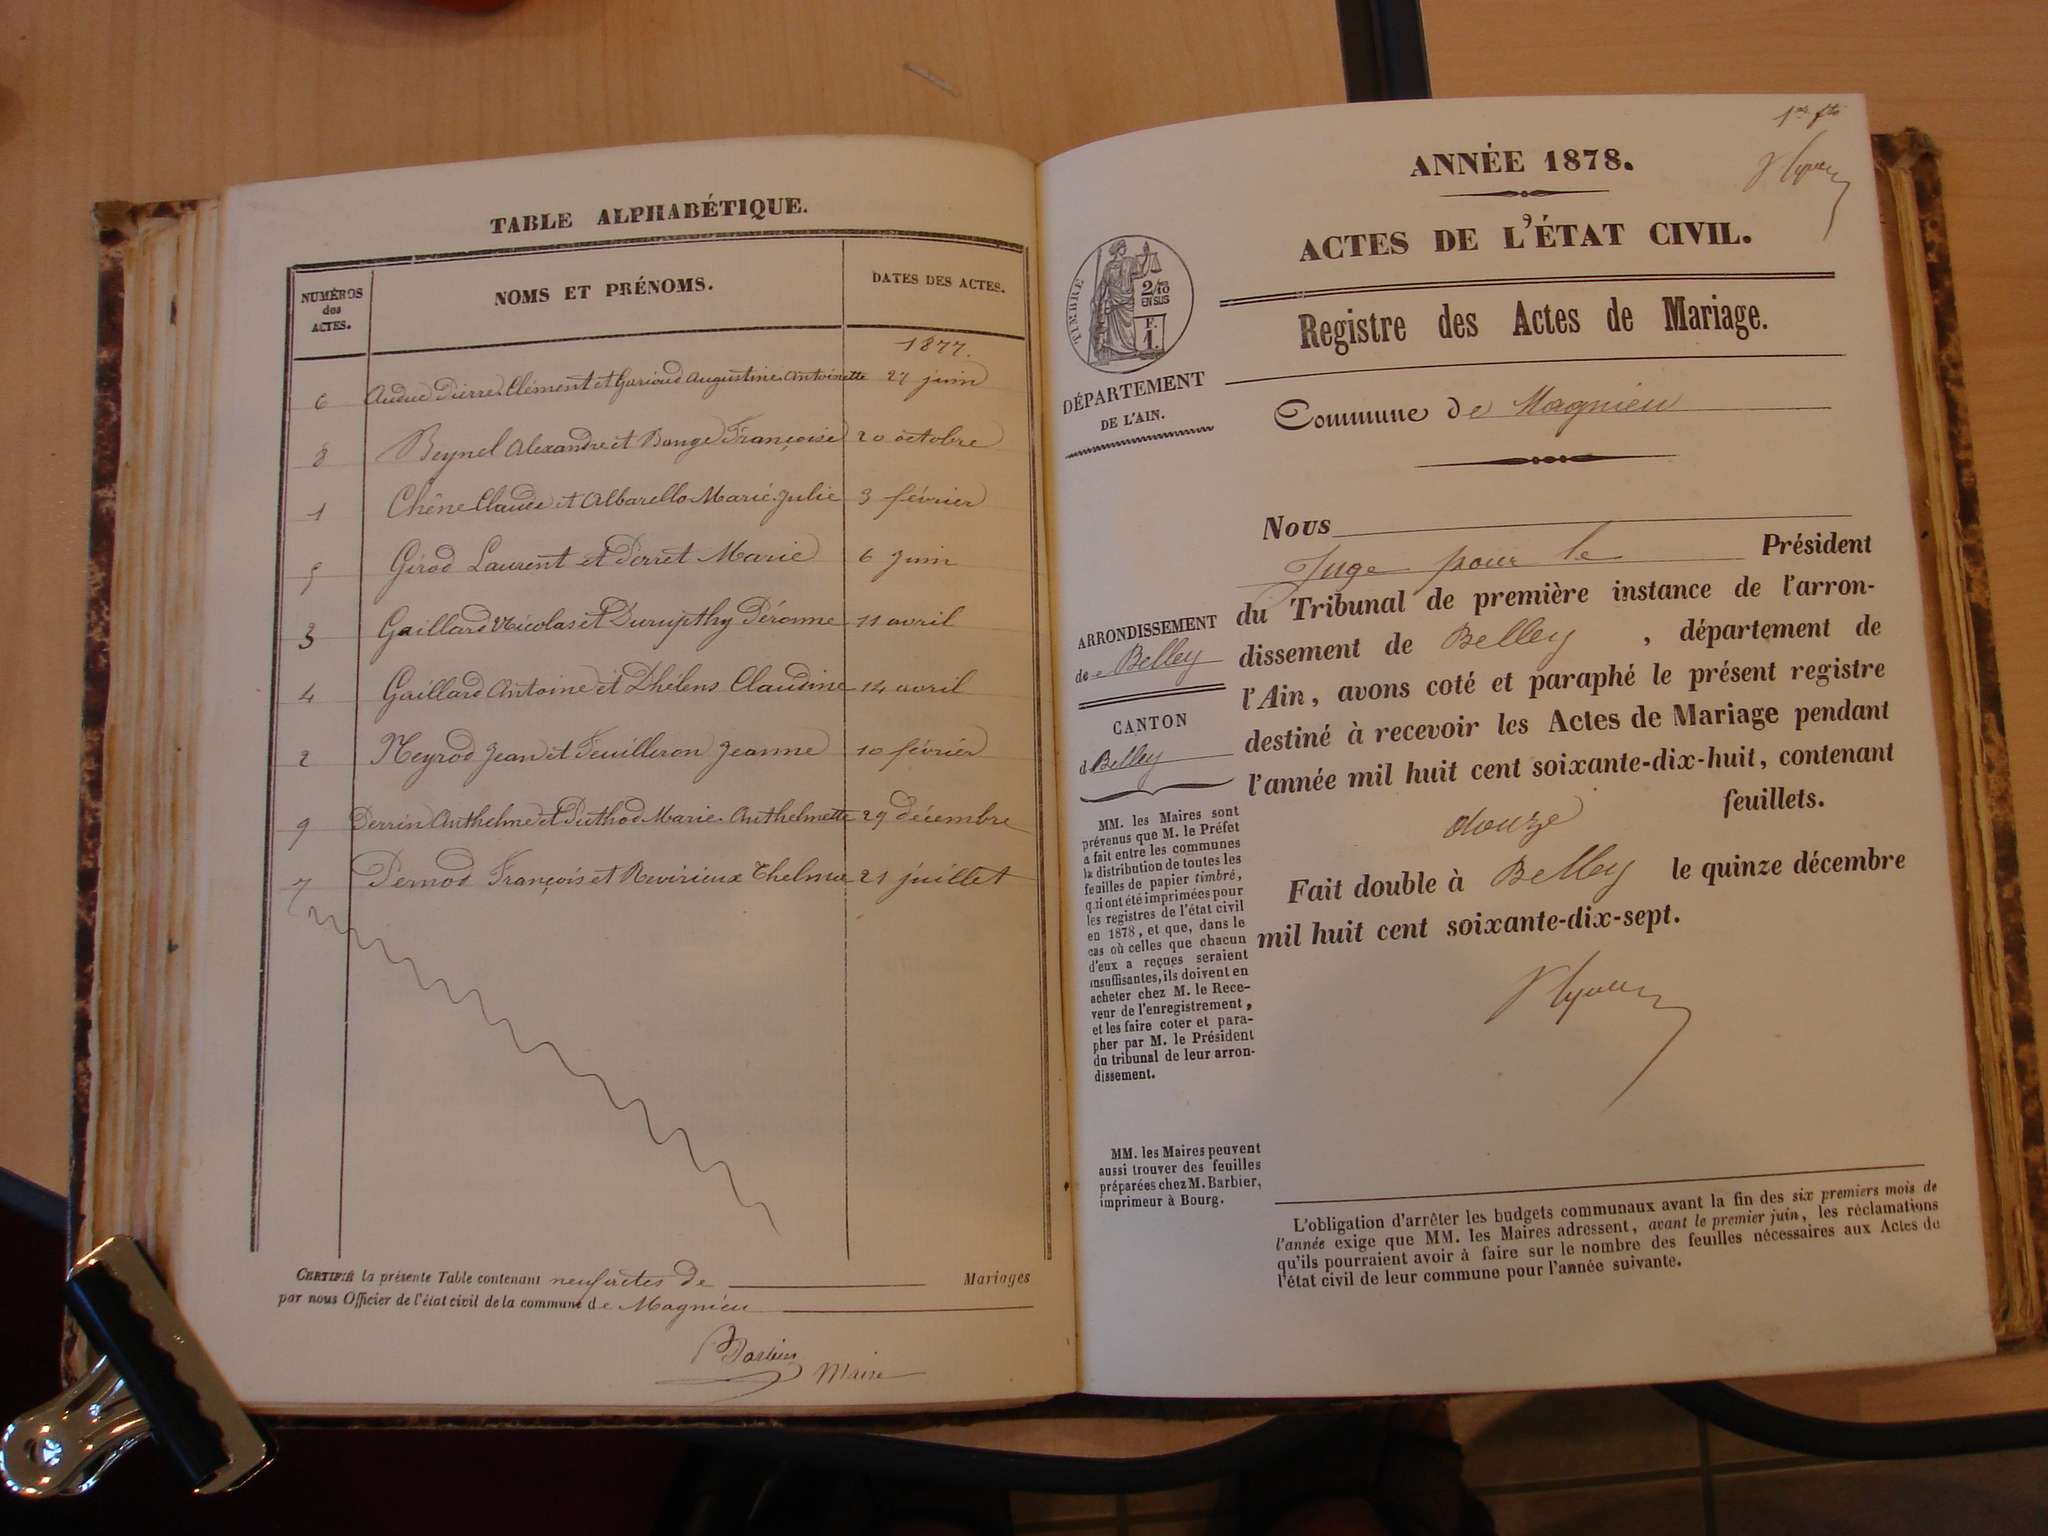 TABLE ALPHABÉTIQUE.
NUMÉROS des ACTES.
NOMS ET PRÉNOMS.
DATES DES ACTES.
1877.
6 Audue Pierre Clément et Garioud Augustine Antoinette 27 juin
8 Beynel Alexandre et Bange Françoise 20 octobre
1 Chêne Claude et Albarello Marie Julie 3 février
5 Girod Laurent et Perret Marie 6 Juin
3 Gaillard Nicolas et Durupthy Péronne 11 avril
4 Gaillard Antoine et Dhélens Claudine 14 avril
2 Neyrod Jean et Feuilleron Jeanne 10 février
9 Perrin Anthelme et Puthod Marie Anthelmette 29 décembre
7 Pernod François et Revirieux Thelme 21 juillet
CERTIFIÉ la présente Table contenant neuf actes de Mariages
par nous Officier de l'état civil de la commune de Magnieu
Maire
ANNÉE 1878.
ACTES DE L'ÉTAT CIVIL.
Registre des Actes de Mariage.
TIMBRE
2/10
EN SUS
F.
1.
DÉPARTEMENT
DE L'AIN.
Commune de Magnieu
Nous
Juge pour le Président
du Tribunal de première instance de l'arron-
dissement de Belley, département de
l'Ain, avons coté et paraphé le présent registre
destiné à recevoir les Actes de Mariage pendant
l'année mil huit cent soixante-dix-huit, contenant
douze feuillets.
Fait double à Belley le quinze décembre
mil huit cent soixante-dix-sept.
ARRONDISSEMENT
de Belley
CANTON
d Belley
MM. les Maires sont
prévenus que M. le Préfet
a fait entre les communes
la distribution de toutes les
feuilles de papier timbré,
qui ont été imprimées pour
les registres de l'état civil
en 1878, et que, dans le
cas où celles que chacun
d'eux a reçues seraient
insuffisantes, ils doivent en
acheter chez M. le Rece-
veur de l'enregistrement,
et les faire coter et para-
pher par M. le Président
du tribunal de leur arron-
dissement.
MM. les Maires peuvent
aussi trouver des feuilles
préparées chez M. Barbier,
imprimeur à Bourg.
L'obligation d'arrêter les budgets communaux avant la fin des six premiers mois de
l'année exige que MM. les Maires adressent, avant le premier juin, les réclamations
qu'ils pourraient avoir à faire sur le nombre des feuilles nécessaires aux Actes de
l'état civil de leur commune pour l'année suivante.